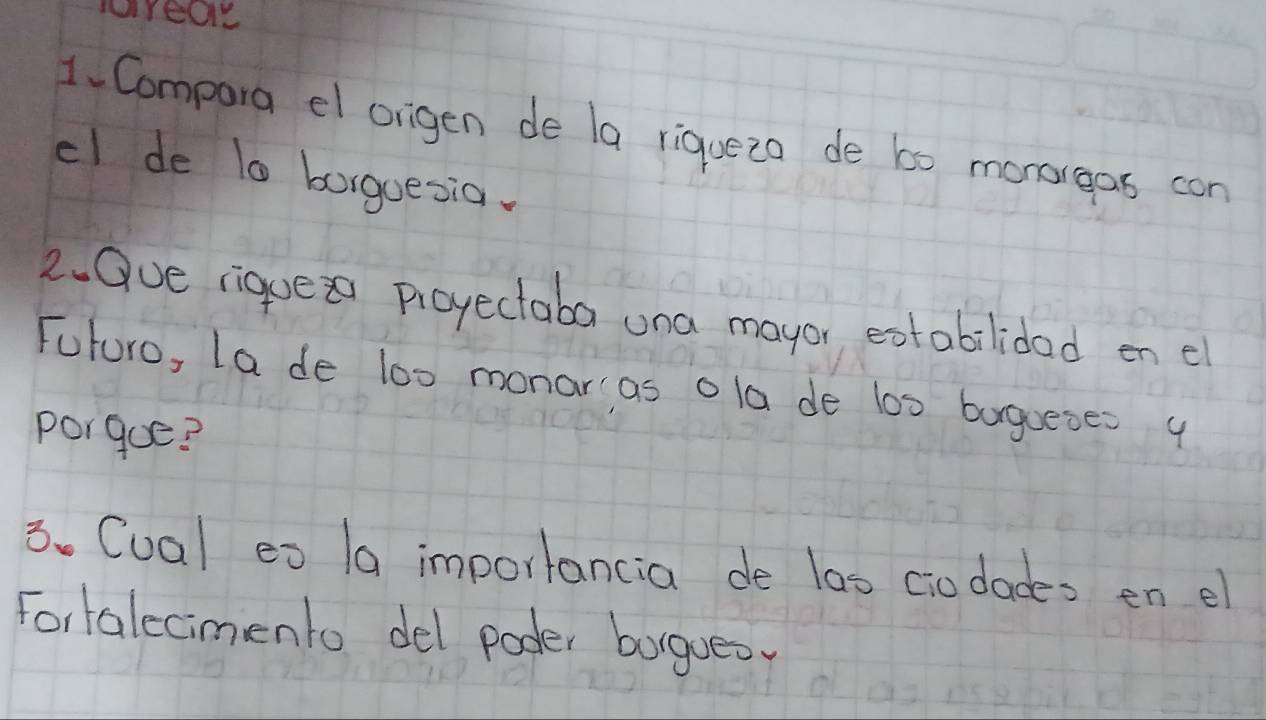 tarea:
1. Compara el origen de la riqueza de los monargas con
el de la burguesia.
2. Que riqueza proyectaba una mayor estabilidad en el
Futuro, la de los monarcas o la de los burgueses y
porque?
3. Cual es la importancia de las ciudades en el
Fortalecimiento del poder burgues.